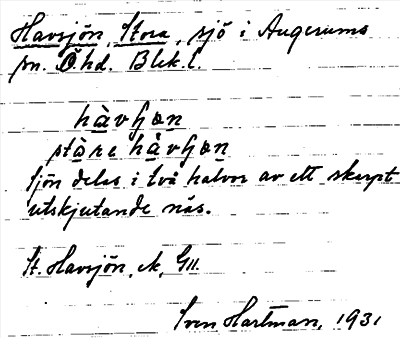 Havsjön, Stora, sjö i Augerums
sn. Ö. hd. Blek. l.
hàvʃɷn
stàre hàvʃɷn
Sjön delas i två halvor av ett skarpt
utskjutande näs.
St. Havsjön, ek, G11.
Sven Hartman, 1931